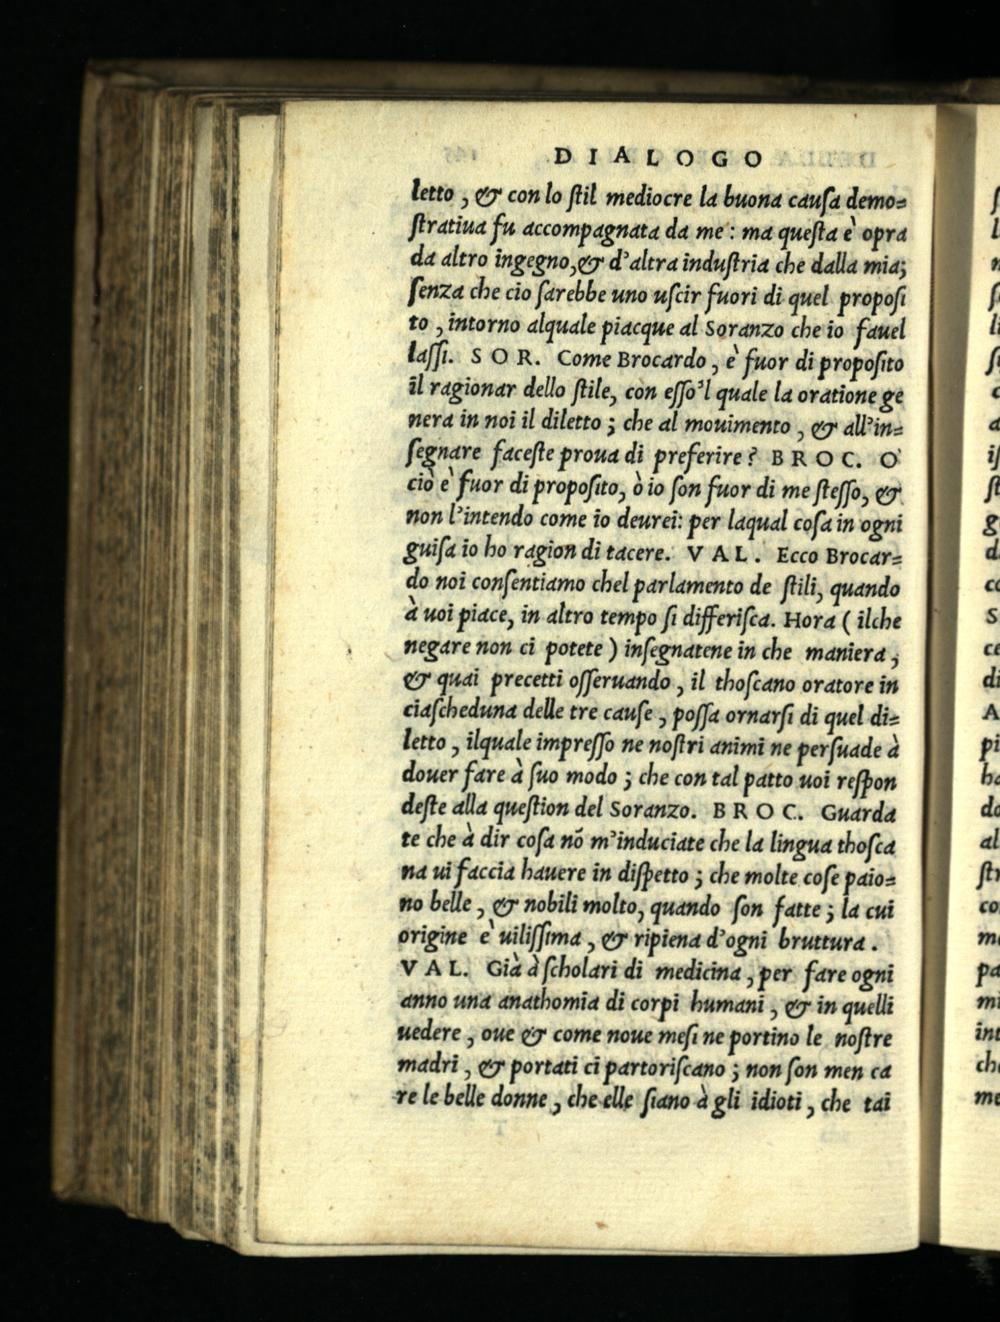 DIALOGO
letto, & con lo ſtil mediocre la buona cauſa demo=
ſtratiua fu accompagnata da me: ma queſta è opra
da altro ingegno, & d'altra induſtria che dalla mia;
ſenza che cio ſarebbe uno uſcir fuori di quel propoſi
to, intorno alquale piacque al Soranzo che io fauel
laſſi. SOR. Come Brocardo, è fuor di propoſito
il ragionar dello ſtile, con eſſo'l quale la oratione ge
nera in noi il diletto; che al mouimento, & all'in=
ſegnare faceſte proua di preferire? BROC. O'
ciò è fuor di propoſito, ò io ſon fuor di me ſteſſo, &
non l'intendo come io deurei: per laqual coſa in ogni
guiſa io ho ragion di tacere. VAL. Ecco Brocar=
do noi conſentiamo chel parlamento de ſtili, quando
à uoi piace, in altro tempo ſi differiſca. Hora (ilche
negare non ci potete) inſegnatene in che maniera,
& quai precetti oſſeruando, il thoſcano oratore in
ciaſcheduna delle tre cauſe, poſſa ornarſi di quel di=
letto, ilquale impreſſo ne noſtri animi ne perſuade à
douer fare à ſuo modo; che con tal patto uoi reſpon
deſte alla queſtion del Soranzo. BROC. Guarda
te che à dir coſa nõ m'induciate che la lingua thoſca
na ui faccia hauere in diſpetto; che molte coſe paio=
no belle, & nobili molto, quando ſon fatte; la cui
origine è uiliſſima, & ripiena d'ogni bruttura.
VAL. Già à ſcholari di medicina, per fare ogni
anno una anathomia di corpi humani, & in quelli
uedere, oue & come noue meſi ne portino le noſtre
madri, & portati ci partoriſcano; non ſon men ca
re le belle donne, che elle ſiano à gli idioti, che tai